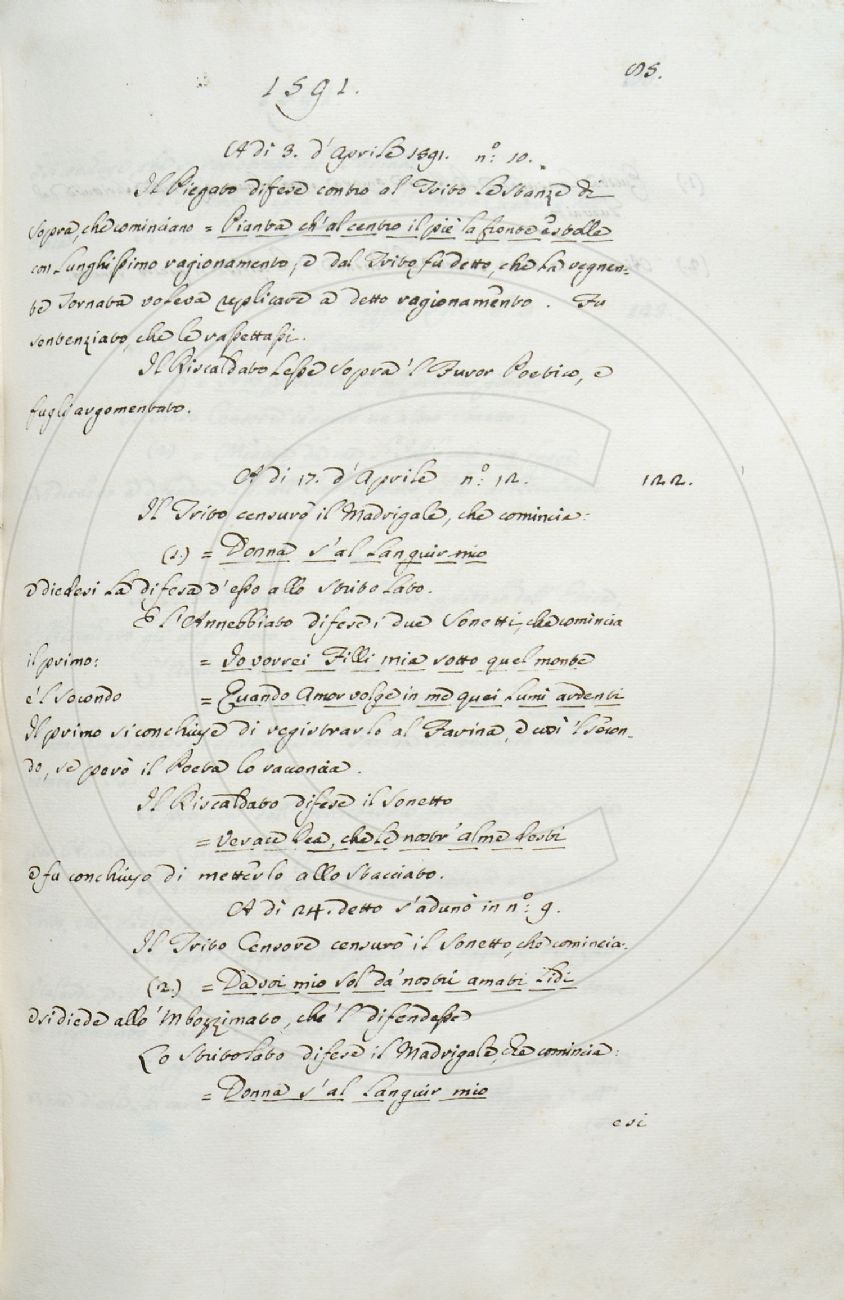 85.
1591.
A di 3. d'Aprile 1591. n.º 10.
Il Piegato difese contro al Trito le stanze di
sopra, che cominciano = Pianta ch'al centro il piè la fronte estolle
con Lunghissimo ragionamento, e dal Trito fu detto, che la vegnen-
te Tornata voleva replicare a detto ragionamento. Fu
sentenziato, che le raspettassi.
Il Riscaldato Lesse sopra 'l Furor Poetico, e
fugli argomentato.
A di 17. d'Aprile n.º 12. 122.
Il Trito censurò il Madrigale, che comincia:
(1.) = Donna s'al Languir mio
e diedesi La difesa d'esso allo Stritolato.
E l'Annebbiato difese i due Sonetti, che comincia
il primo: = Io vorrei Filli mia sotto quel monte
e 'l secondo = Quando Amor volge in me quei Lumi ardenti
Il primo si conchiuse di registrarlo al Farina, e così 'l secon-
do, se però il Poeta lo racconcia.
Il Riscaldato difese il Sonetto
= Verace Dea, che le nostr'alme
e fu conchiuso di metterlo allo Stacciato.
A di 24. detto s'adunò in n.º 9.
Il Trito Censore censurò il Sonetto, che comincia.
(2.) = Da voi mio sol da' nostri amati Lidi
e si diede allo 'Mbozzimato, che 'l difendesse
Lo Stritolato difese il Madrigale, che comincia:
= Donna s'al Languir mio
e si